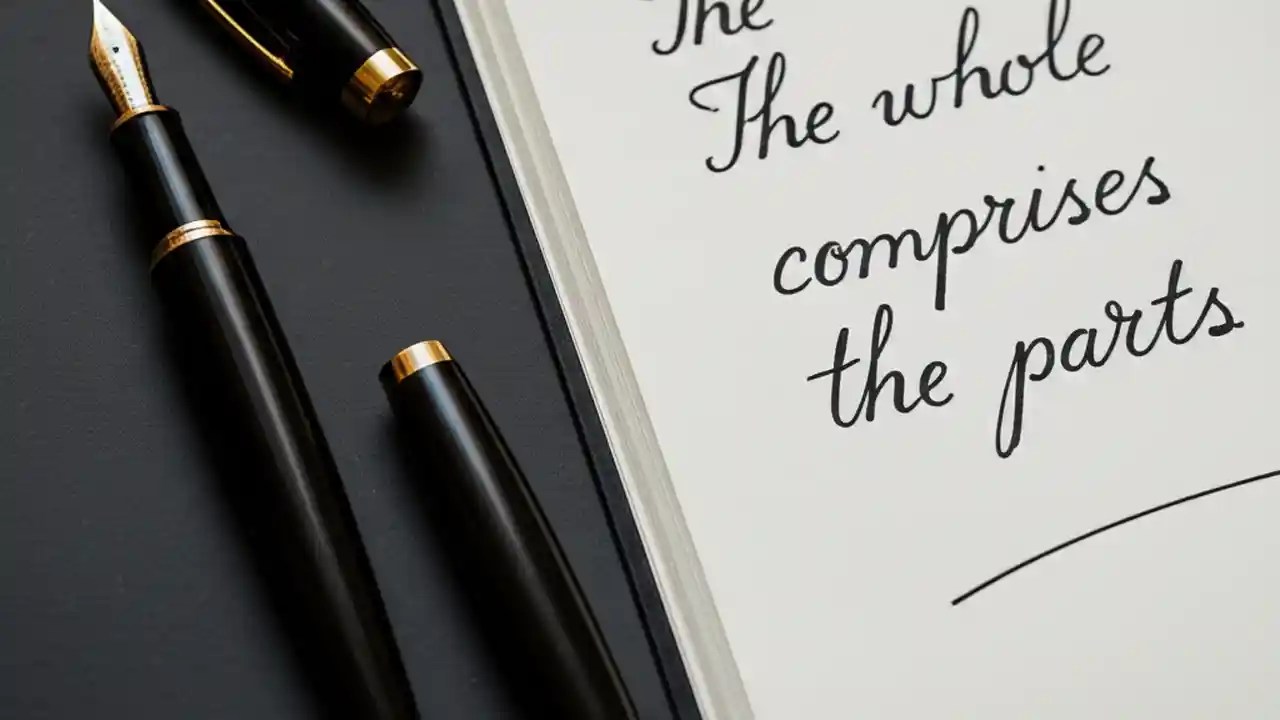 The
The whole
comprises
the parts